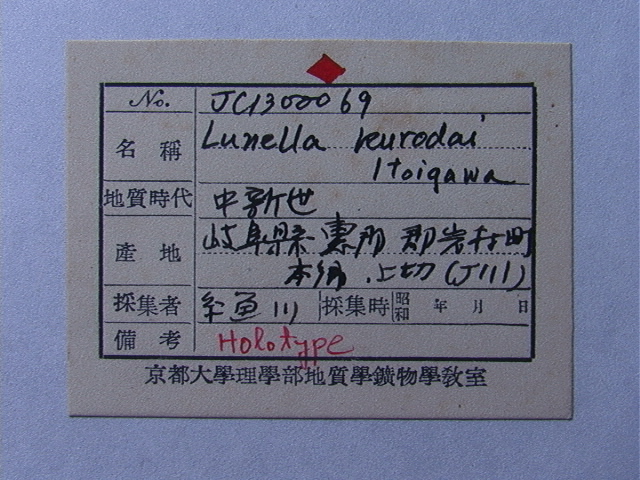 No. JC1300069
名稱 Lunella kurodai
Itoigawa
地質時代 中新世
產地 岐阜県恵那郡岩村町
本郷.上切(J111)
採集者 糸魚川 採集時 昭和 年 月 日
備考 Holotype
京都大學理學部地質學鑛物學敎室